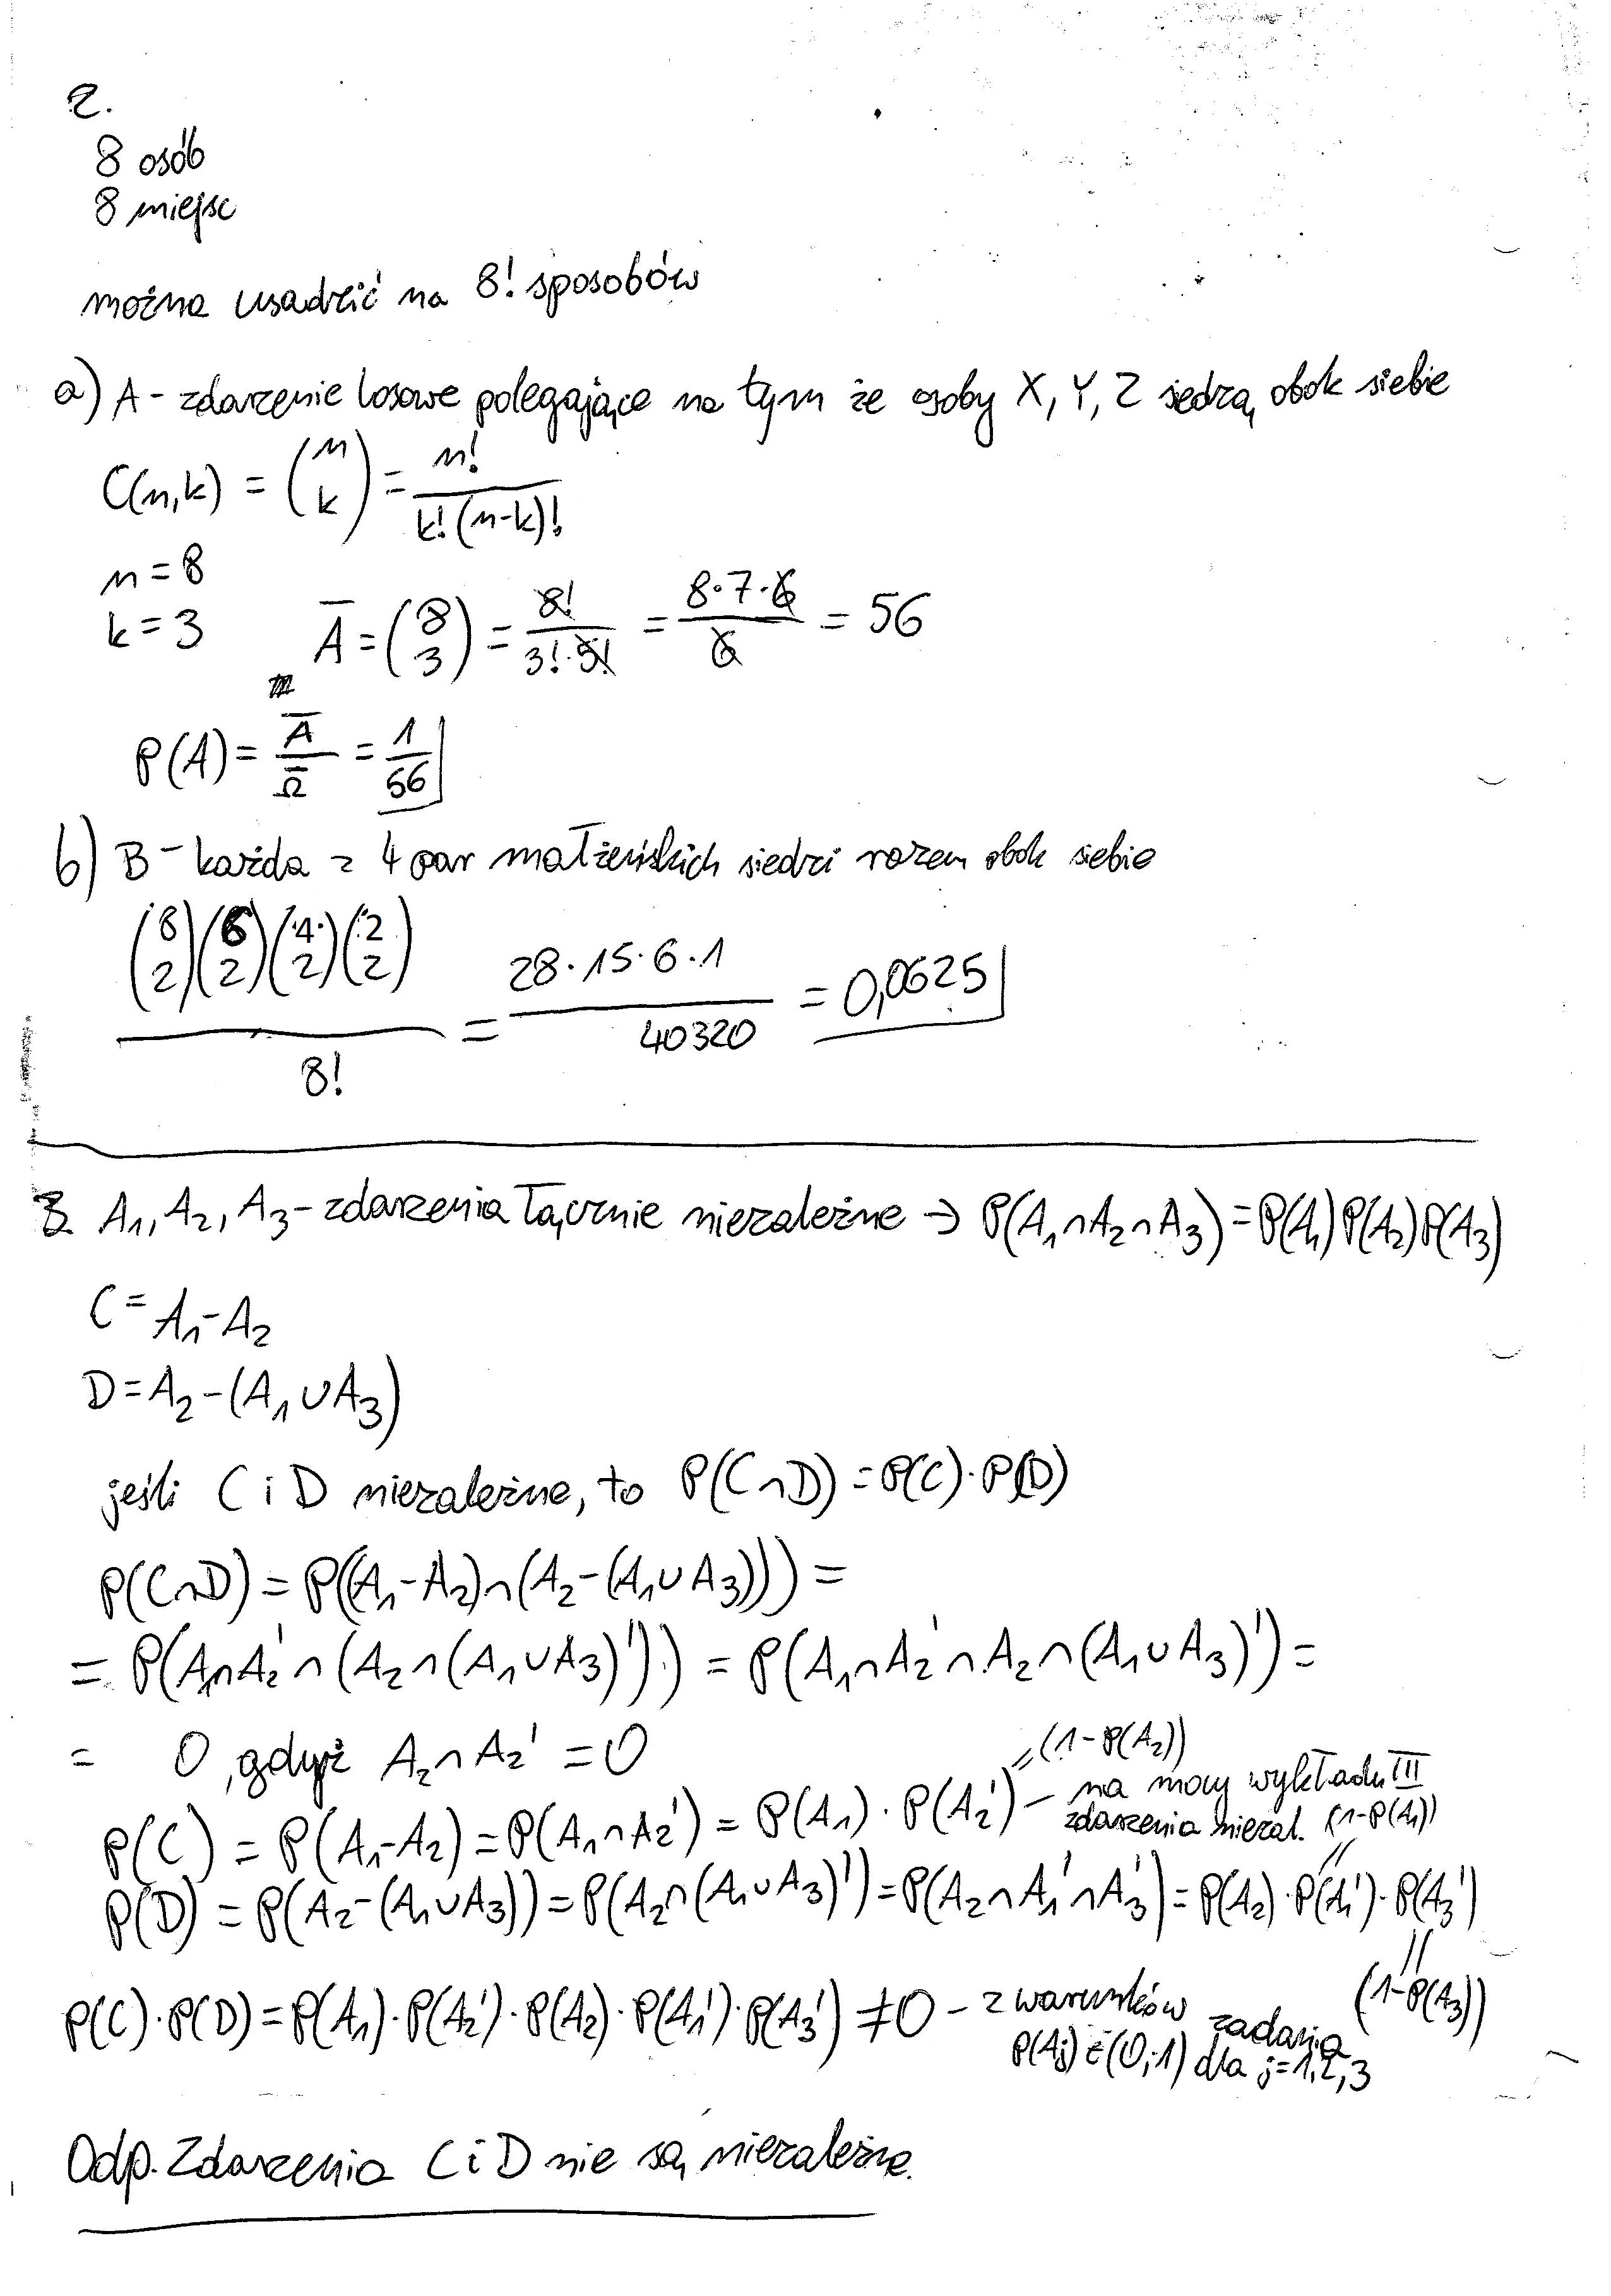 2.
8 osób
8 miejsc
można usadzić na 8! sposobów
a) A - zdarzenie losowe polegające na tym że osoby X, Y, Z siedzą obok siebie
C(n,k) = (n k) = n! / k!(n-k)!
n = 8
k = 3
A̅ = (8 3) = 8! / 3!·5! = 8·7·6 / 6 = 56
P(A) = A̅ / Ω̅ = 1/56
b) B - każda z 4 par małżeńskich siedzi razem obok siebie
(8 2)(6 2)(4 2)(2 2) / 8! = 28·15·6·1 / 40320 = 0,0625
3. A₁, A₂, A₃ - zdarzenia łącznie niezależne → P(A₁∩A₂∩A₃) = P(A₁)P(A₂)P(A₃)
C = A₁-A₂
D = A₂-(A₁∪A₃)
jeśli C i D niezależne, to P(C∩D) = P(C)·P(D)
P(C∩D) = P((A₁-A₂)∩(A₂-(A₁∪A₃))) =
= P(A₁∩A₂'∩(A₂∩(A₁∪A₃)')) = P(A₁∩A₂'∩A₂∩(A₁∪A₃)') =
= 0, gdyż A₂∩A₂' = 0
P(C) = P(A₁-A₂) = P(A₁∩A₂') = P(A₁)·P(A₂') - na mocy wykładu III
= (1-P(A₂))
zdarzenia niezal. (1-P(A₁))
P(D) = P(A₂-(A₁∪A₃)) = P(A₂∩(A₁∪A₃)') = P(A₂∩A₁'∩A₃') = P(A₂)·P(A₁')·P(A₃')
(1-P(A₃))
P(C)·P(D) = P(A₁)·P(A₂')·P(A₂)·P(A₁')·P(A₃') ≠ 0 - z warunków zadania
P(Aj) ∈ (0;1) dla j=1,2,3
Odp. Zdarzenia C i D nie są niezależne.